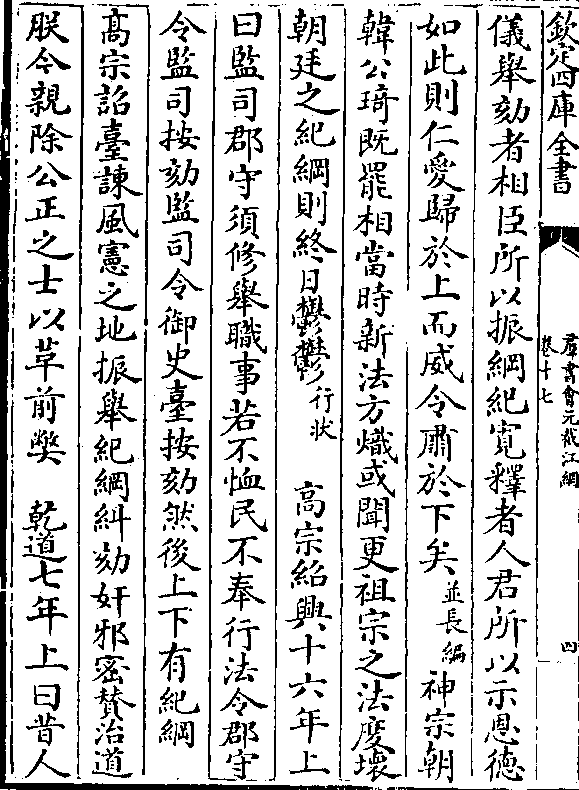 欽定四庫全書
羣書會元截江網
卷十七
四
儀舉劾者相臣所以振綱紀寛釋者人君所以示恩德
如此則仁愛歸於上而威令肅於下矣並長編 神宗朝
韓公琦既罷相當時新法方熾或聞更祖宗之法度壞
朝廷之紀綱則終日鬱鬱行狀 高宗紹興十六年上
曰監司郡守須修舉職事若不恤民不奉行法令郡守
令監司按劾監司令御史臺按劾然後上下有紀綱
髙宗詔臺諫風憲之地振舉紀綱糾劾奸邪密賛治道
朕今親除公正之士以革前弊 乾道七年上曰昔人